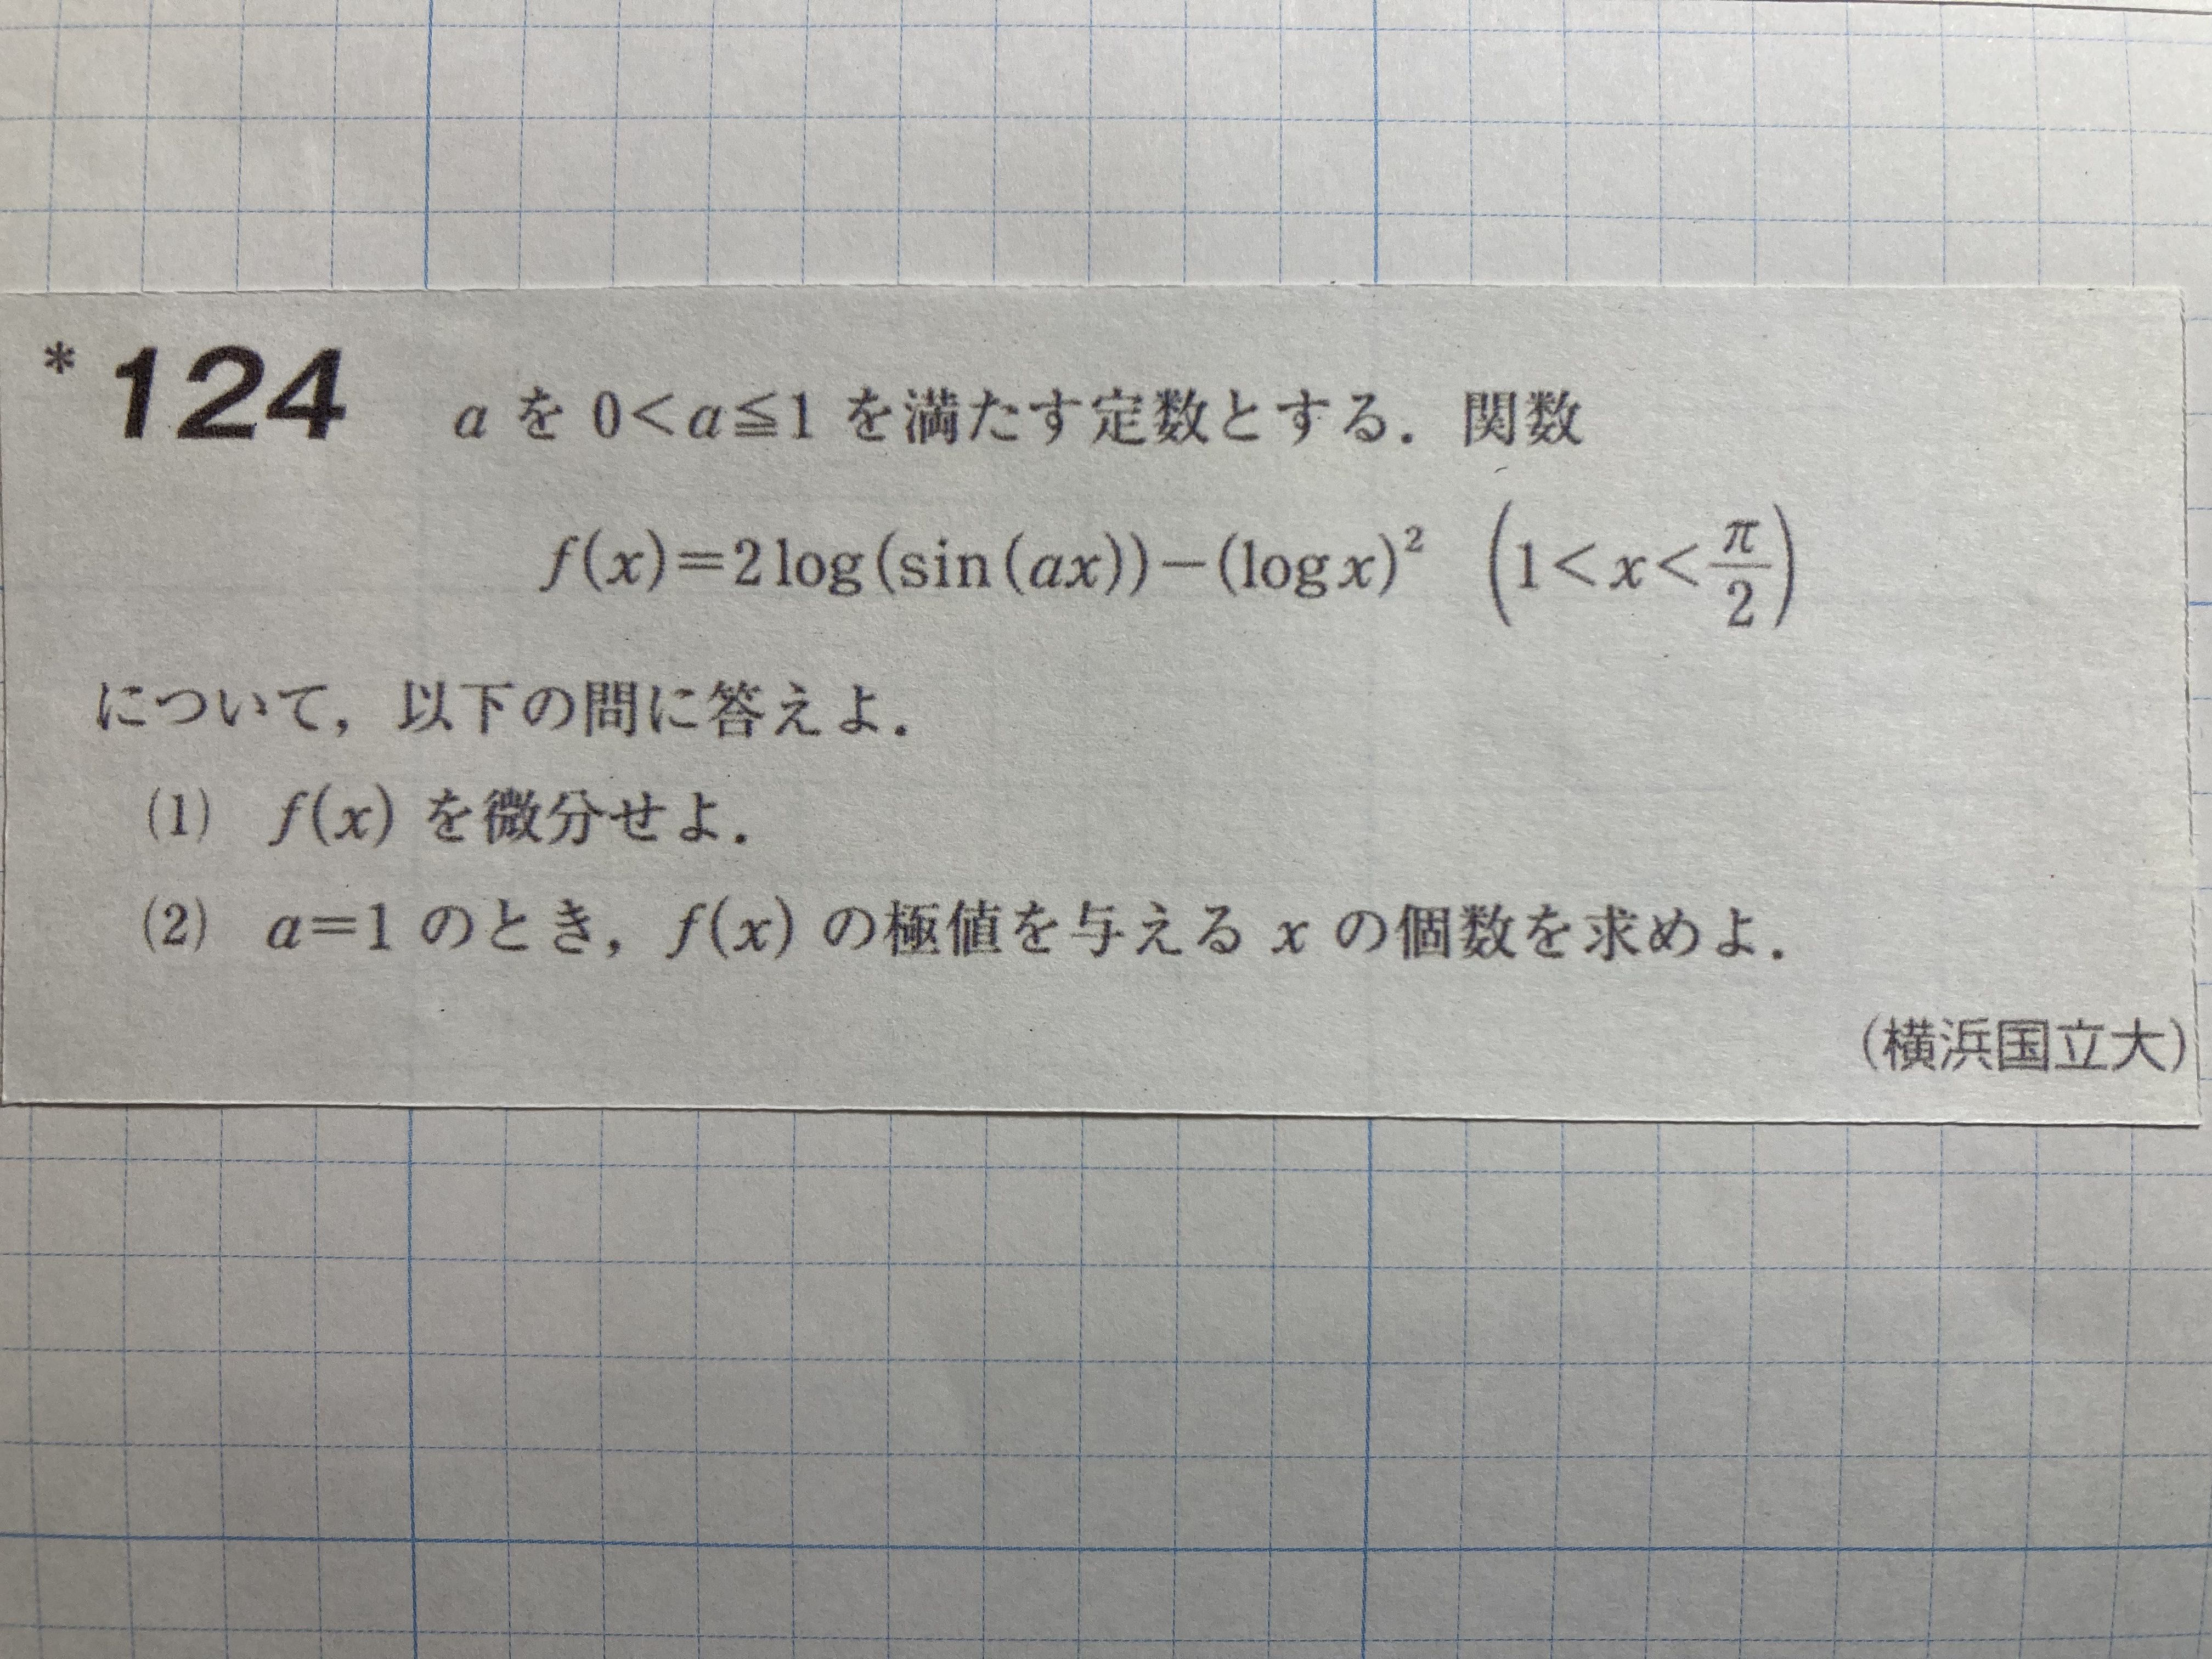 *124 aを0<a≦1を満たす定数とする．関数
f(x)=2log(sin(ax))−(log x)² (1<x<π/2)
について，以下の問に答えよ．
(1) f(x)を微分せよ．
(2) a=1のとき，f(x)の極値を与えるxの個数を求めよ．
(横浜国立大)